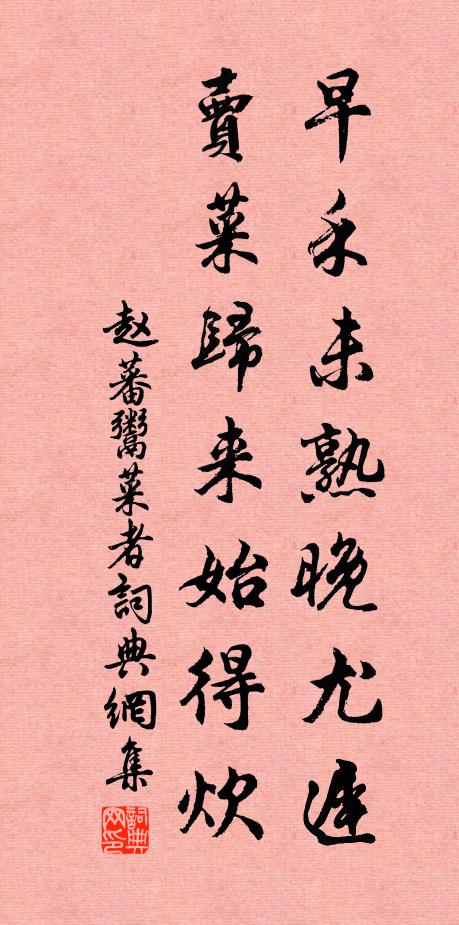 早禾未熟晚尤遲
賣菜歸来始得炊
赵蕃鬻菜者詞典網集
詞典网印